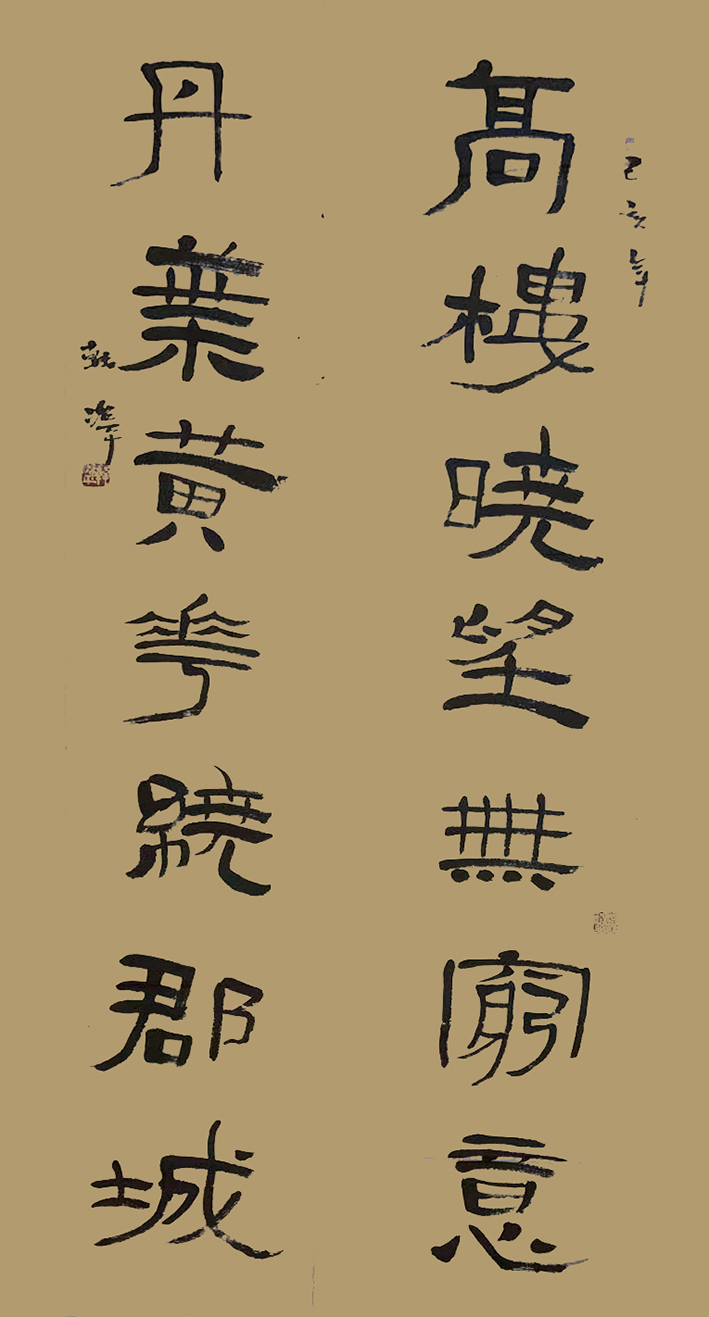 己亥年
高樓曉望無窮意
丹葉黃花繞郡城